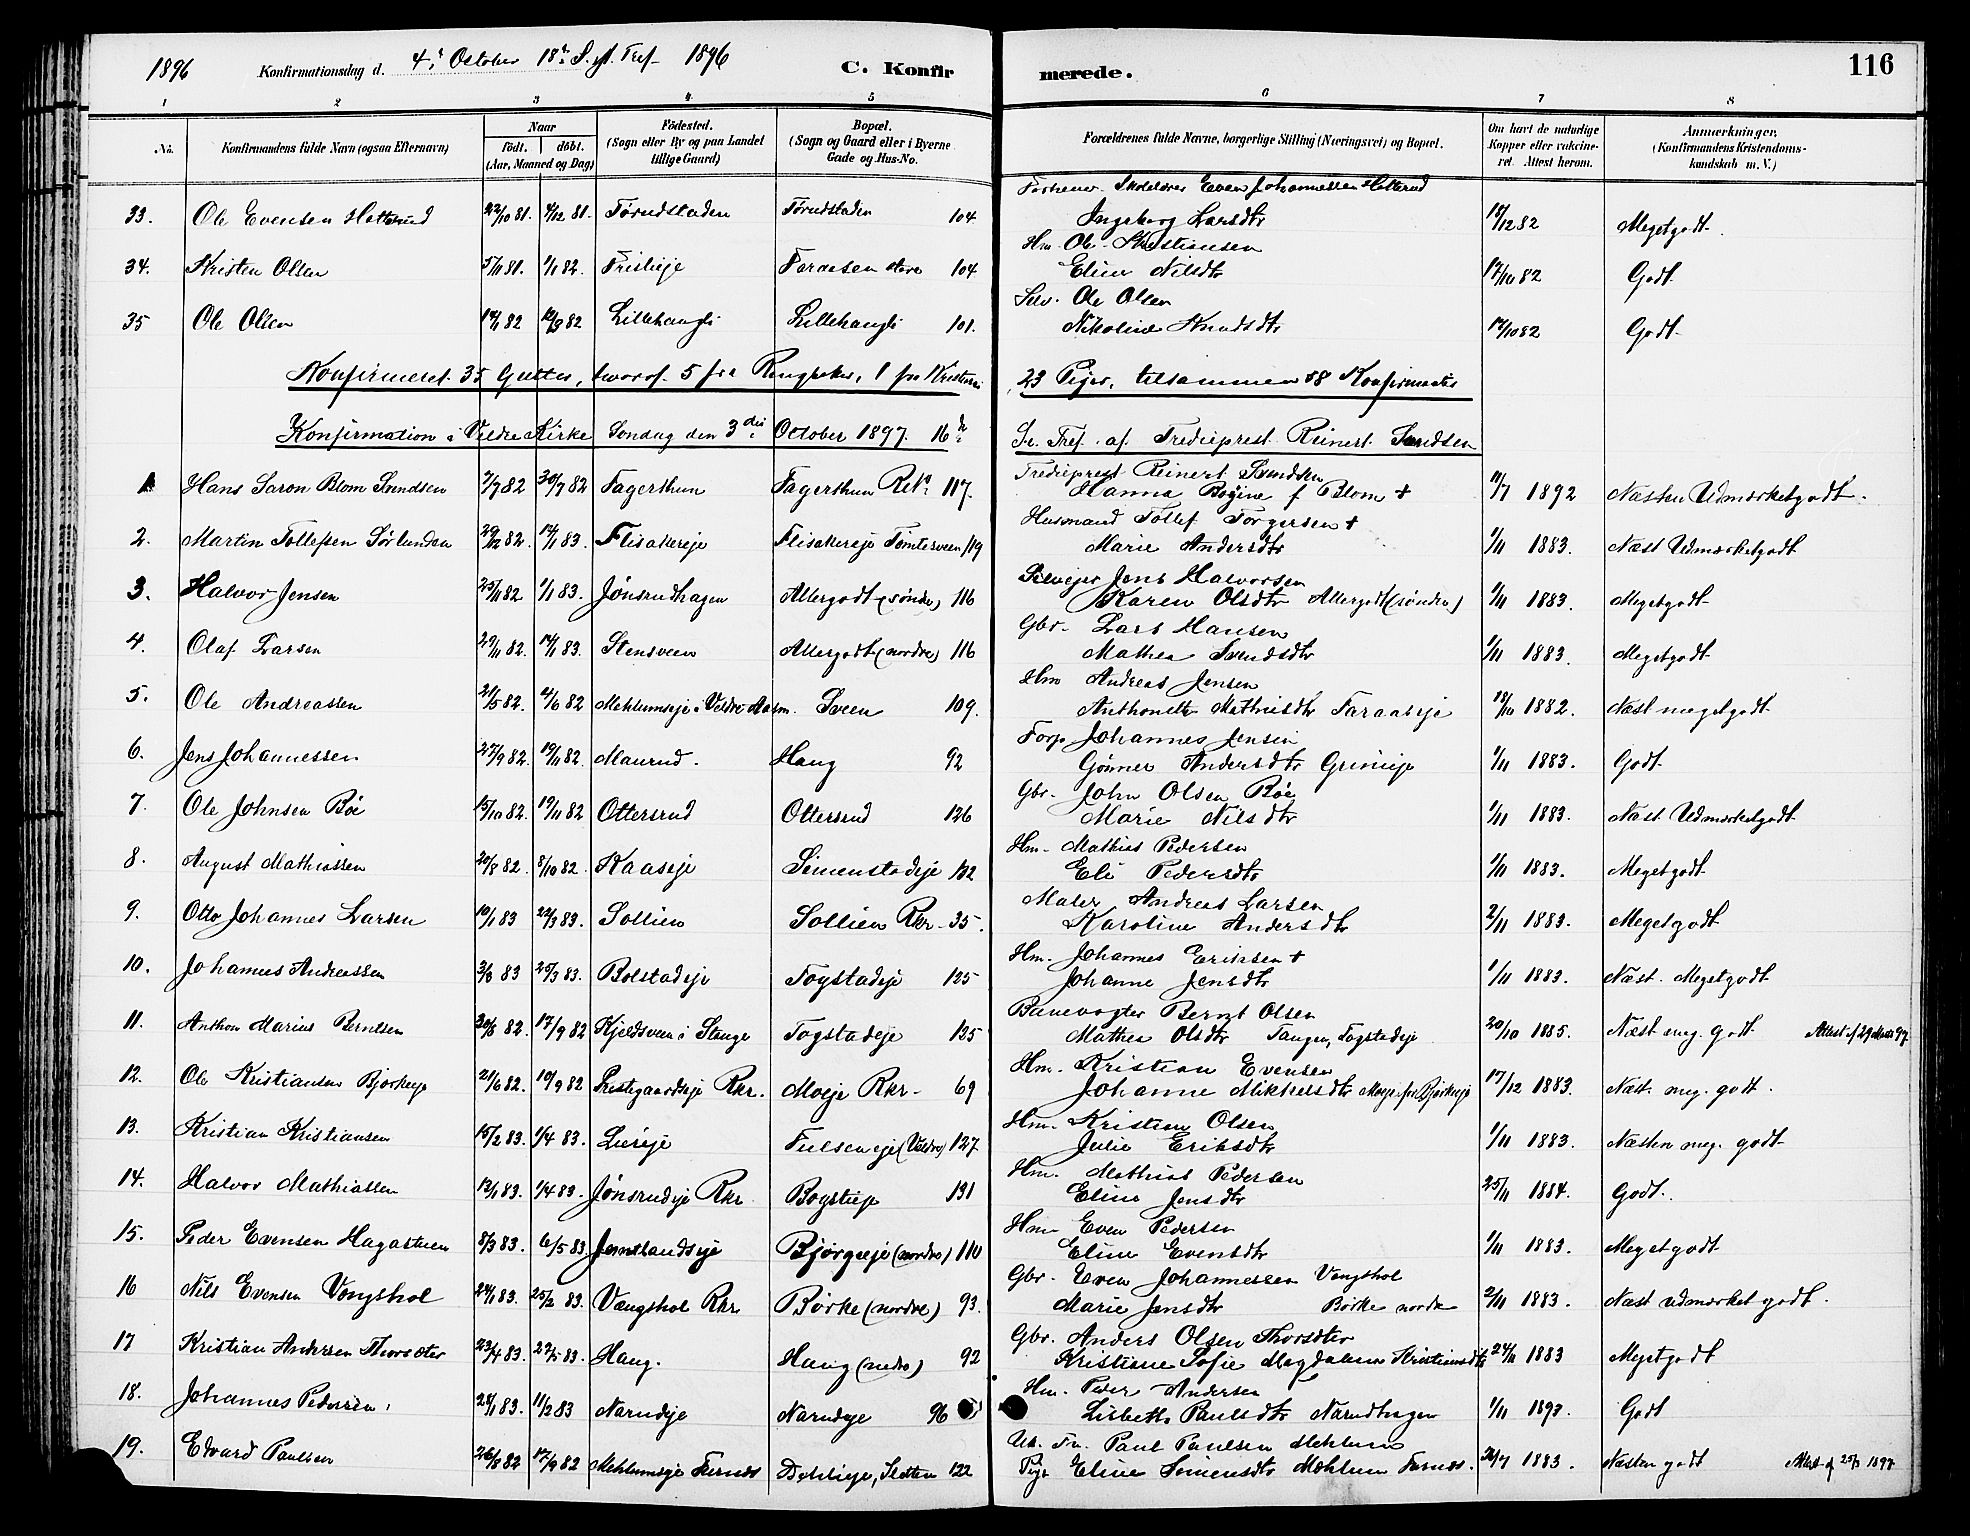 1896 Konfirmationsdag d. 4. October 18. S. e. Tref. 1896 C. Konfirmerede. 116
1 2 3 4 5 6 7 8
No. Konfirmandens fulde Navn (ogsaa Efternavn) Naar født. døbt. (Aar, Maaned og Dag) Fødested. (Sogn eller By og paa Landet tillige Gaard) Bopæl. (Sogn og Gaard eller i Byerne Gade og Hus-No. Forældrenes fulde Navne, borgerlige Stilling (Næringsvei) og Bopæl. Om havt de naturlige Kopper eller vaccineret. Attest herom. Anmærkninger. (Konfirmandens Kristendomskundskab m. V.)
Skolelærer Even Johannessen
33. Ole Evensen 22/10 81. 4/12 81. Tørudstaden Tørudstaden 104 Ingeborg Larsdtr 18/12 82 Megetgodt.
Hm. Ole Kristiansen
34. Kristen Olsen 5/11 81. 1/1 82. 104 Eline Nilsdtr 17/10 82 Godt.
Selv. Ole Olsen
35 Ole Olsen 14/1 82 12/3 82 Lillehaugli Lillehaugli 101. Nikoline Knudsdtr 17/10 82 Godt.
Konfirmeret 35 Gutter, hvoraf 5 fra Ringsaker, 1 fra 23 Piger, tilsammen 58 Konfirmanter
Konfirmation i Veldre Kirke Søndag den 3die October 1897. 16de S. e. Tref. af Trediepræst Reinert Svendsen
Tredieprest Reinert Svendsen
1 Hans Saron Blom Svendsen 7/7 82 30/7 82 Fagerthun Fagerthun Rkr. 117. Hanna Regine f Blom + 11/7 1892 Næsten Udmærketgodt.
Husmand Tollef Torgersen +
2. Martin Tollefsen Sørlunden 29/12 82. 14/1 83. Flisakereje Flisakereje Tomtesveen 119 Marie Andersdtr 1/11 1883. Næst Udmærketgodt
Selvejer Jens Halvorsen
3. Halvor Jensen 25/11 82 1/1 83. Jønsrudhagen Allergodt (søndre) 116 Karen Olsdtr Allergodt (søndre) 1/11 1883. Megetgodt
Gbr. Lars Hansen
4. Olaf Larsen 29/11 82. 14/1 83. Stensveen Allergodt (nordre) 116 Mathea Svendsdtr 1/11 1883. Megetgodt
Hm Andreas Jensen
5. Ole Andreassen 21/5 82. 4/6 82 Mehlumseje i Veldre Sveen 109. Anthonette Mathisdtr Faraaseje 18/10 1882. Næst megetgodt
Forp. Johannes Jensen
6. Jens Johannessen 27/9 82. 19/11 82. Maurud. Haug 92 Gønner Andersdtr 1/11 1883. Godt
Gbr. John Olsen Bøe
7. Ole Johnsen Bøe 15/10 82. 19/11 82 Ottersrud Ottersrud 126 Marie Nilsdtr 1/11 1883. Næst Udmærketgodt
Hm. Mathias Pedersen
8. August Mathiassen 20/8 82. 8/10 82. Kaaseje Simenstadeje 132 Eli Pedersdtr 1/11 1883. Megetgodt
Maler Andreas Larsen
9. Otto Johannes Larsen 10/1 83 22/3 83. Sollien Sollien Rkr. 35. Karoline Andersdtr 2/11 1883. Megetgodt
Hm. Johannes Eriksen +
10. Johannes Andreassen 3/3 83 25/3 83. Bolstadeje Fogstadeje 125 Johanne Jensdtr 1/11 1883. Næst. Megetgodt
Banevogter Bernt Olsen
11. Anthon Marius Berntsen 30/8 82. 17/9 82 Kjeldsveen i Stange Fogstadeje 125 Mathea Olsdtr Tangen, Fogstadeje 20/10 1885. Næst meg. godt
Hm. Kristian Evensen
12. Ole Kristiansen Bjørkeeje 21/6 82. 10/9 82 Prestegaardseje Rkr. Moeje Rkr. 69 Johanne Mikkelsdtr Moeje fra Bjørkeeje 17/12 1883. Næst. meg. godt.
Hm. Kristian Olsen
13. Kristian Kristiansen 15/2 83. 1/4 83. Lieeje (Veldre) 127 Julie Eriksdtr 1/11 1883. Næsten meg. godt
Hm. Mathias Pedersen
14. Halvor Mathiassen 12/1 83. 1/4 83. Jønsrudeje Rkr. 131 Eline Jensdtr 25/11 1884. Godt.
Hm Even Pedersen
15. Peder Evensen Hagastuen 8/3 83. 6/5 83 Jemtlandseje Bjørgeeje (nordre) 110 Eline Evensdtr 1/11 1883. Megetgodt
Gbr. Even Johannessen Vongshol
16 Nils Evensen Vongshol 24/1 83. 25/2 83. Vængshol Rkr Børke (nordre) 93. Marie Jensdtr Børke nordre 2/11 1883. Næst udmærket godt.
Gbr. Anders Olsen
17 Kristian Andersen 23/4 83. 27/5 83. Haug. Haug (nedre) 92 Kristiane Sofie Magdalene Kristiansdtr 24/11 1883 Megetgodt
Hm. Peder Andersen
18. Johannes Pedersen 24/1 83. 11/2 83 Narudeje Narudeje 96 Lisbeth Paulsdtr Narudhagen 1/11 1893. Godt
Uk. Fm. Paul Paulsen Mehlum
19. Edvard Paulsen 26/8 82 17/9 82 Mehlumseje Furnæs Dehlieje, Sletten 122 Pige Eline Simensdtr Mehlum Furnæs. 1883. Næsten godt